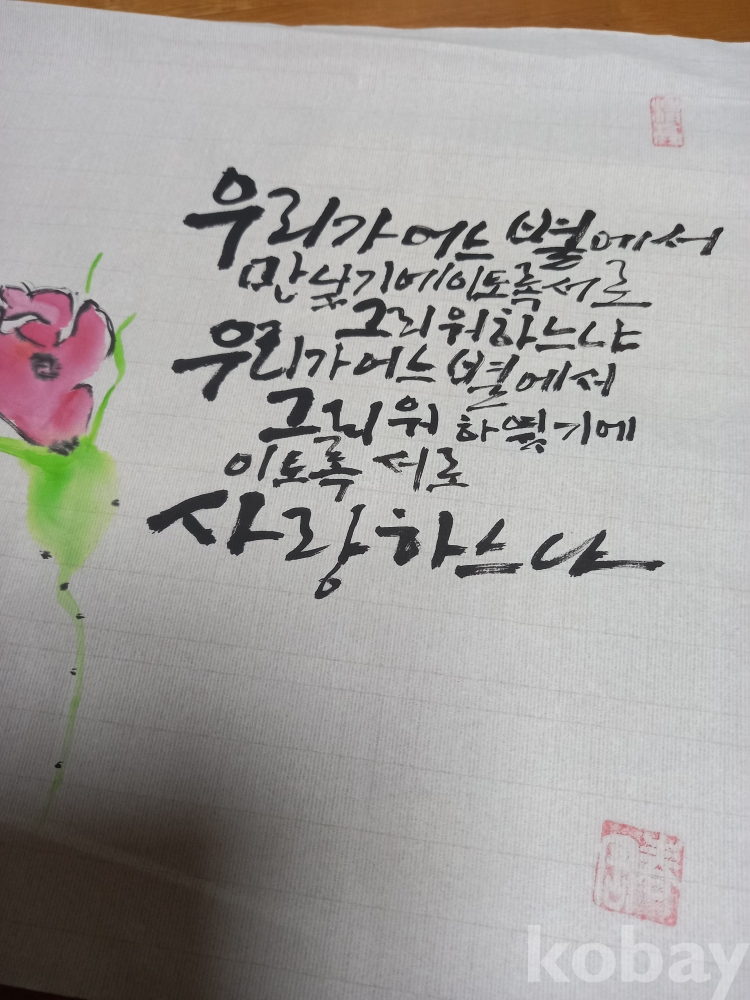 우리가 어느 별에서
만났기에 이토록 서로
그리워하느냐
우리가 어느 별에서
그리워 하였기에
이토록 서로
사랑하느냐
kobay